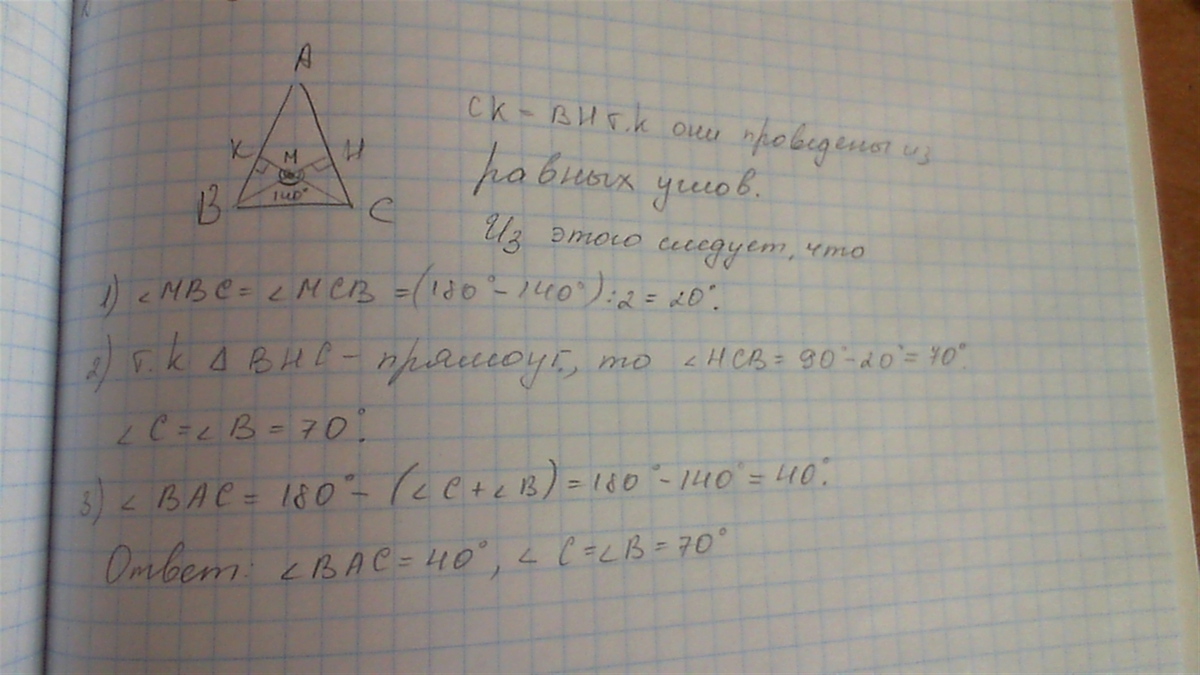 A
K M H
140°
B C
CK = BH т.к они проведены из
равных углов.
Из этого следует, что
1) ∠MBC = ∠MCB = (180° - 140°) : 2 = 20°.
2) т.к Δ BHC - прямоуг., то ∠HCB = 90° - 20° = 70°.
∠C = ∠B = 70°.
3) ∠BAC = 180° - (∠C + ∠B) = 180° - 140° = 40°.
Ответ: ∠BAC = 40°, ∠C = ∠B = 70°